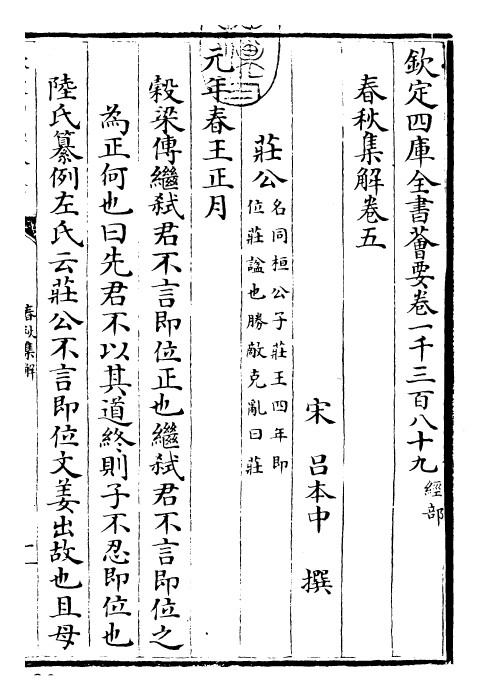 欽定四庫全書薈要卷一千三百八十九 經部
春秋集解卷五
宋 呂本中 撰
莊公 名同桓公子莊王四年即
位莊諡也勝敵克亂曰莊
元年春王正月
穀梁傳繼弒君不言即位正也繼弒君不言即位之
為正何也曰先君不以其道終則子不忍即位也
陸氏纂例左氏云莊公不言即位文姜出故也且母
春秋集解
一